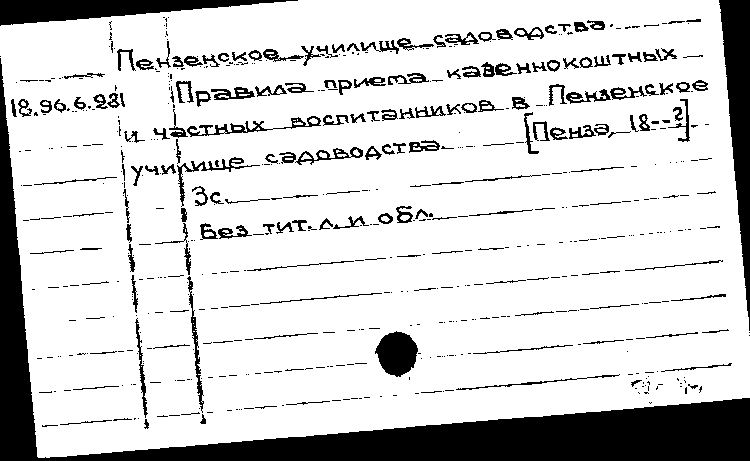 Пензенское училище садоводства.
18.96.6.231 Правила приема казеннокоштных
и частных воспитанников в Пензенское
училище садоводства. [Пенза, 18--?].
3с.
Без тит. л. и обл.